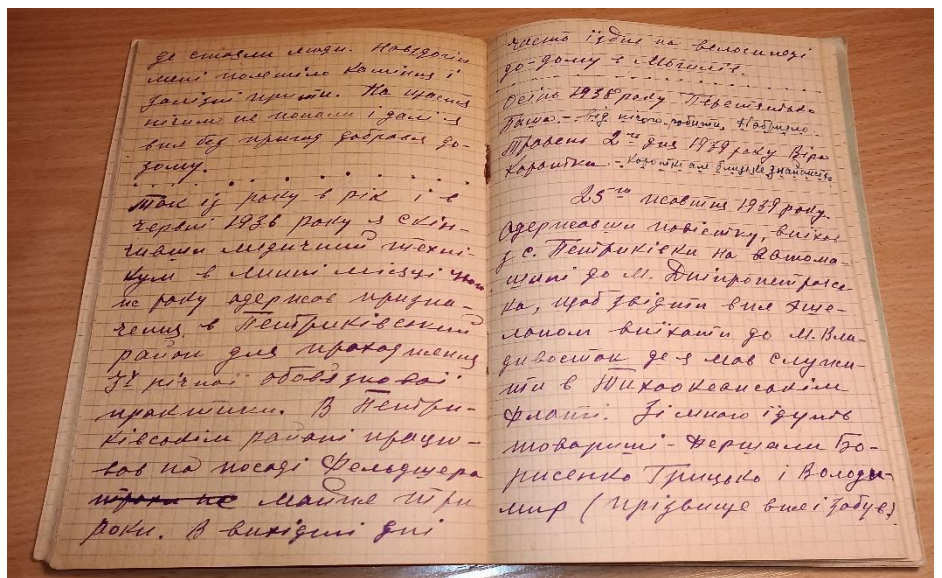 де стояли люди. Навздогін
мені полетіло каміння і
залізні прути. На щастя
нічим не попали і далі я
вже без пригод добрався до-
дому.
. . . . . . . . . .
Так із року в рік і в
червні 1936 року я скін-
чивши медичний техні-
кум в липні місяці цього
ж року одержав призна-
чення в Петриківський
район для проходження
3х річної обов'язкової
практики. В Петри-
ківськім районі працю-
вав на посаді фельдшера
майже три
роки. В вихідні дні
часто їздив на велосипеді
до-дому в Могилів.
. . . . . . . . . .
Осінь 1938 року
Паша. – від нічого робити. Набридло.
Травень 2го дня 1939 року Віра
Коротка. – коротке але близьке знайомство.
25го жовтня 1939 року
Одержавши повістку, виїхав
з с. Петриківки на автома-
шині до м. Дніпропетровсь-
ка, щоб звідти вже еше-
лоном виїхати до м. Вла-
дивосток де я мав служи-
ти в Тихоокеанськім
флоті. Зі мною їдуть
товариші – Бо-
рисенко Грицько і Володи-
мир (прізвище вже і забув)